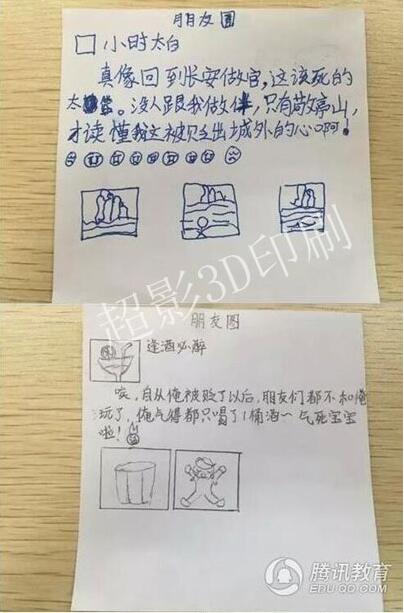 朋友圈
小时太白
真像回到长安做官,这该死的
太。没人跟我做伴,只有敬亭山,
才读懂我这被贬出城外的心啊!
超影3D印刷
朋友圈
逢酒必醉
唉,自从俺被贬了以后,朋友们都不和俺
玩了,俺气得都只喝了1桶酒~气死宝宝
啦!
腾讯教育
EDU.QQ.COM